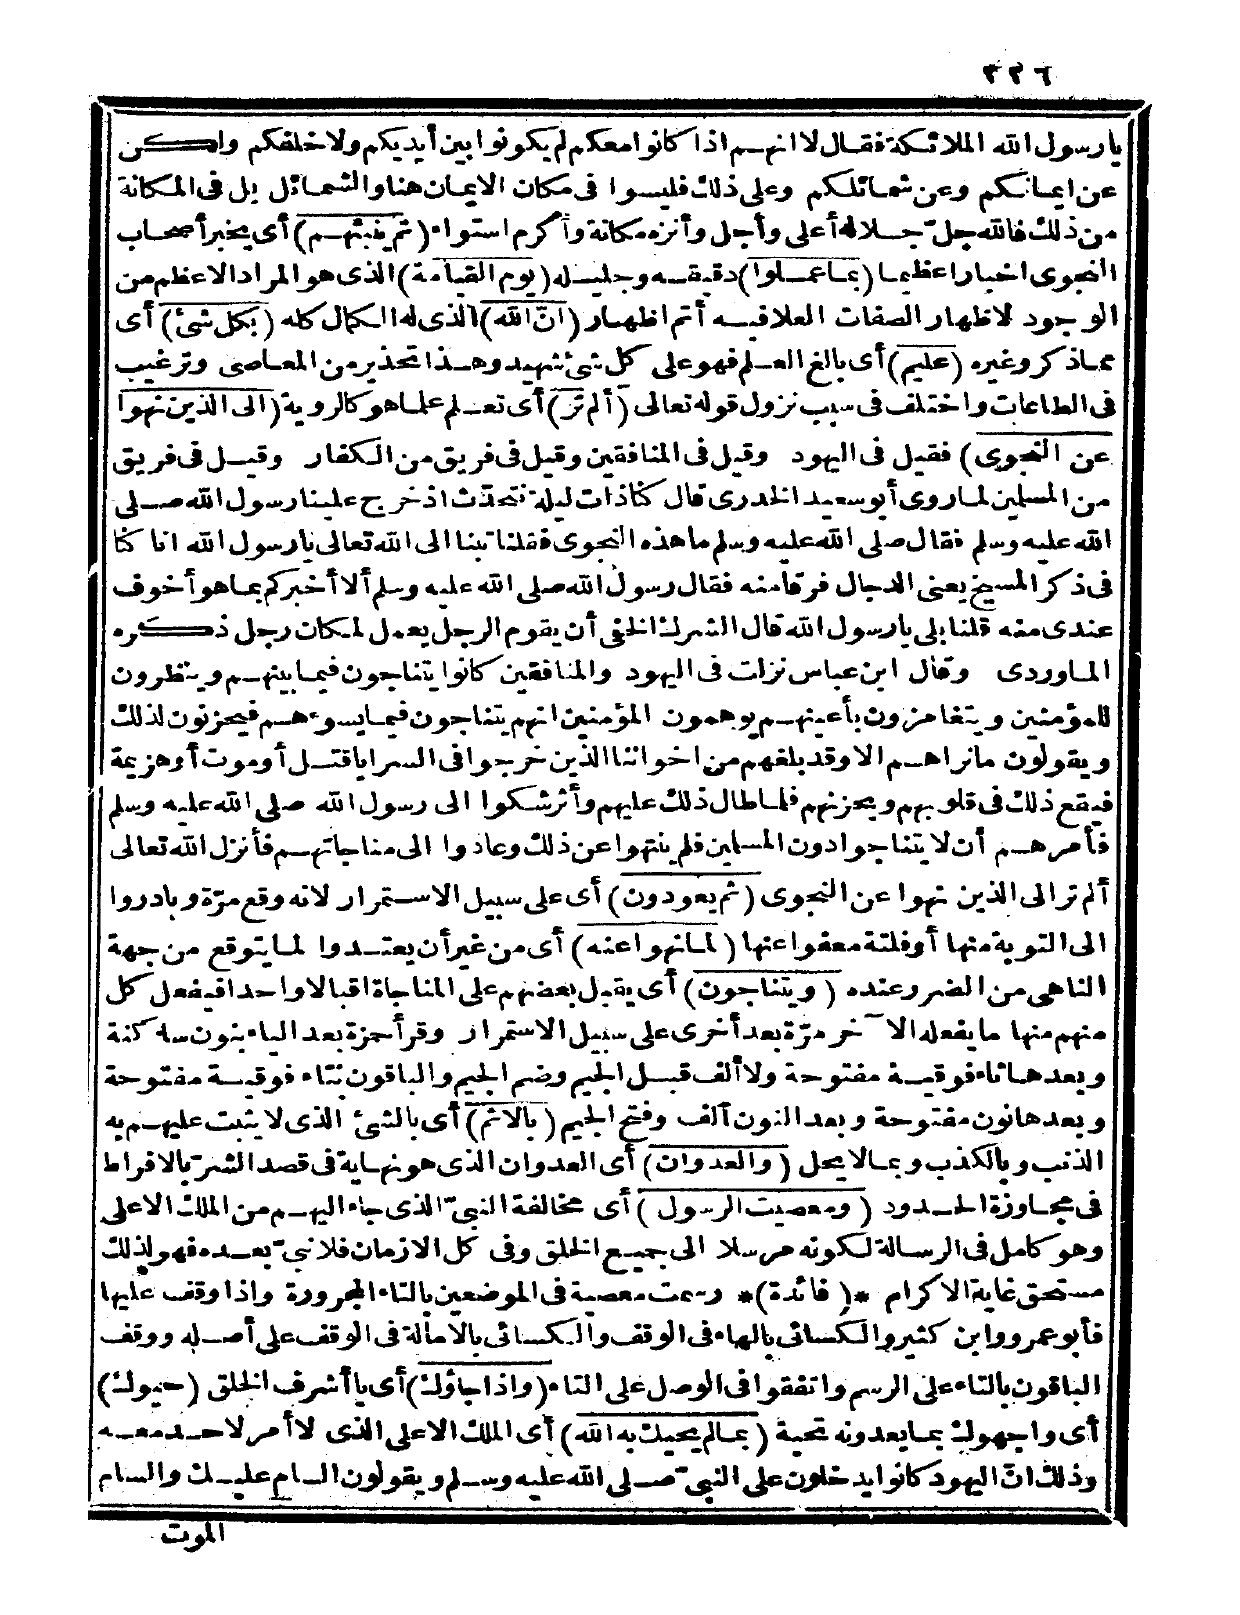 ٢٢٦
يا رسول الله الملائكة فقال لا انهم اذا كانوا معكم لم يكونوا بين أيديكم ولا خلفكم ولكن
عن ايمانكم وعن شمائلكم وعلى ذلك فليسوا فى مكان الايمان هنا والشمائل بل فى المكانة
من ذلك فالله جل جلاله أعلى وأجل وأنزه مكانة وأكرم استواء (ثم ينبئهم) أى يخبر أصحاب
النجوى اخبارا عظيما (بما عملوا) دقيقه وجليله (يوم القيامة) الذى هو المراد الاعظم من
الوجود لاظهار الصفات العلا فيه أتم اظهار (انّ الله) الذى له الكمال كله (بكل شئ) أى
مماذكر وغيره (عليم) أى بالغ العلم فهو على كل شئ شهيد وهذا تحذير من المعاصى وترغيب
فى الطاعات واختلف فى سبب نزول قوله تعالى (ألم تر) أى تعلم علما هو كالروية (الى الذين نهوا
عن النجوى) فقيل فى اليهود وقيل فى المنافقين وقيل فى فريق من الكفار وقيل فى فريق
من المسلمين لما روى أبو سعيد الخدرى قال كنا ذات ليلة نتحدّث اذ خرج علينا رسول الله صلى
الله عليه وسلم فقال صلى الله عليه وسلم ما هذه النجوى فقلنا تبنا الى الله تعالى يا رسول الله انا كنا
فى ذكر المسيخ يعنى الدجال فرقا منه فقال رسول الله صلى الله عليه وسلم ألا أخبركم بما هو أخوف
عندى منه قلنا بلى يا رسول الله قال الشرك الخفى أن يقوم الرجل يعمل لمكان رجل ذكره
الماوردى وقال ابن عباس نزلت فى اليهود والمنافقين كانوا يتناجون فيما بينهم وينظرون
للمؤمنين ويتغامزون بأعينهم يوهمون المؤمنين انهم يتناجون فيما يسوءهم فيحزنون لذلك
ويقولون ما نراهم الا وقد بلغهم من اخواننا الذين خرجوا فى السرايا قتل أو موت أو هزيمة
فيقع ذلك فى قلوبهم ويحزنهم فلما طال ذلك عليهم وأثر شكوا الى رسول الله صلى الله عليه وسلم
فأمرهم أن لا يتناجوا دون المسلمين فلم ينتهوا عن ذلك وعادوا الى مناجاتهم فأنزل الله تعالى
ألم تر الى الذين نهوا عن النجوى (ثم يعودون) أى على سبيل الاستمرار لانه وقع مرّة وبادروا
الى التوبة منها أو فلتة معفوا عنها (لما نهوا عنه) أى من غير أن يعتدوا لما يتوقع من جهة
الناهى من الضرر عنده (ويتناجون) أى يقبل بعضهم على المناجاة اقبالا واحدا فيفعل كل
منهم منها ما يفعله الآخر مرّة بعد أخرى على سبيل الاستمرار وقرأ حمزة بعد الياء بنون ساكنة
وبعدها تاء فوقية مفتوحة ولا ألف قبل الجيم وضم الجيم والباقون بتاء فوقية مفتوحة
وبعدها نون مفتوحة وبعد النون ألف وفتح الجيم (بالاثم) أى بالشئ الذى لا يثبت عليهم به
الذنب وبالكذب وبما لا يحل (والعدوان) أى العدوان الذى هو نهاية فى قصد الشرّ بالافراط
فى مجاوزة الحدود (ومعصيت الرسول) أى مخالفة النبىّ الذى جاء اليهم من الملك الاعلى
وهو كامل فى الرسالة لكونه مرسلا الى جميع الخلق وفى كل الازمان فلا نبىّ بعده فهو لذلك
مستحق غاية الاكرام *(فائدة)* رسمت معصية فى الموضعين بالتاء المجرورة واذا وقف عليها
فأبو عمرو وابن كثير والكسائى بالهاء فى الوقف والكسائى بالامالة فى الوقف على أصله ووقف
الباقون بالتاء على الرسم واتفقوا فى الوصل على التاء (واذا جاؤك) أى يا أشرف الخلق (حيوك)
أى واجهوك بما يعدونه تحية (بما لم يحيك به الله) أى الملك الاعلى الذى لا أمر لاحد معه
وذلك انّ اليهود كانوا يدخلون على النبىّ صلى الله عليه وسلم ويقولون السام عليك والسام
الموت